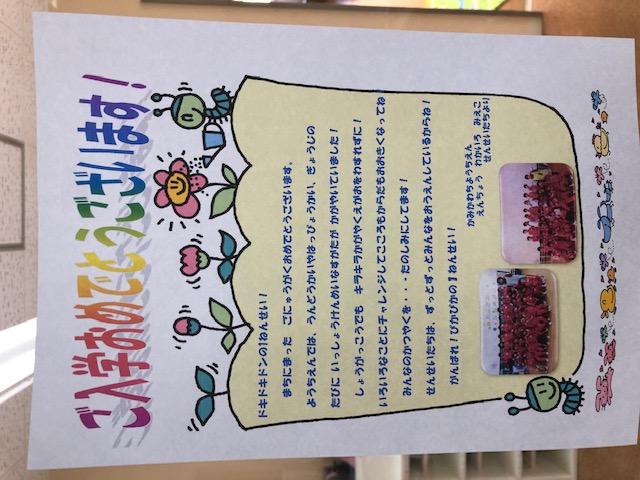 ご入学おめでとうございます!
ドキドキドンの1ねんせい!
まちにまった ごにゅうがくおめでとうございます。
ようちえんでは、うんどうかいやはっぴょうかい、ぎょうじの
たびに いっしょうけんめいなすがたが かがやいていました!
しょうがっこうでも キラキラかがやくえがおをわすれずに!
いろいろなことにチャレンジしてこころもからだもおおきくなってね!
みんなのかつやくを・・・たのしみにしてます!
せんせいたちは、ずっとずっとみんなをおうえんしているからね!
がんばれ!ぴかぴかの1ねんせい!
かみかわちようちえん
えんちょう わかいろ みえこ
せんせいたちより